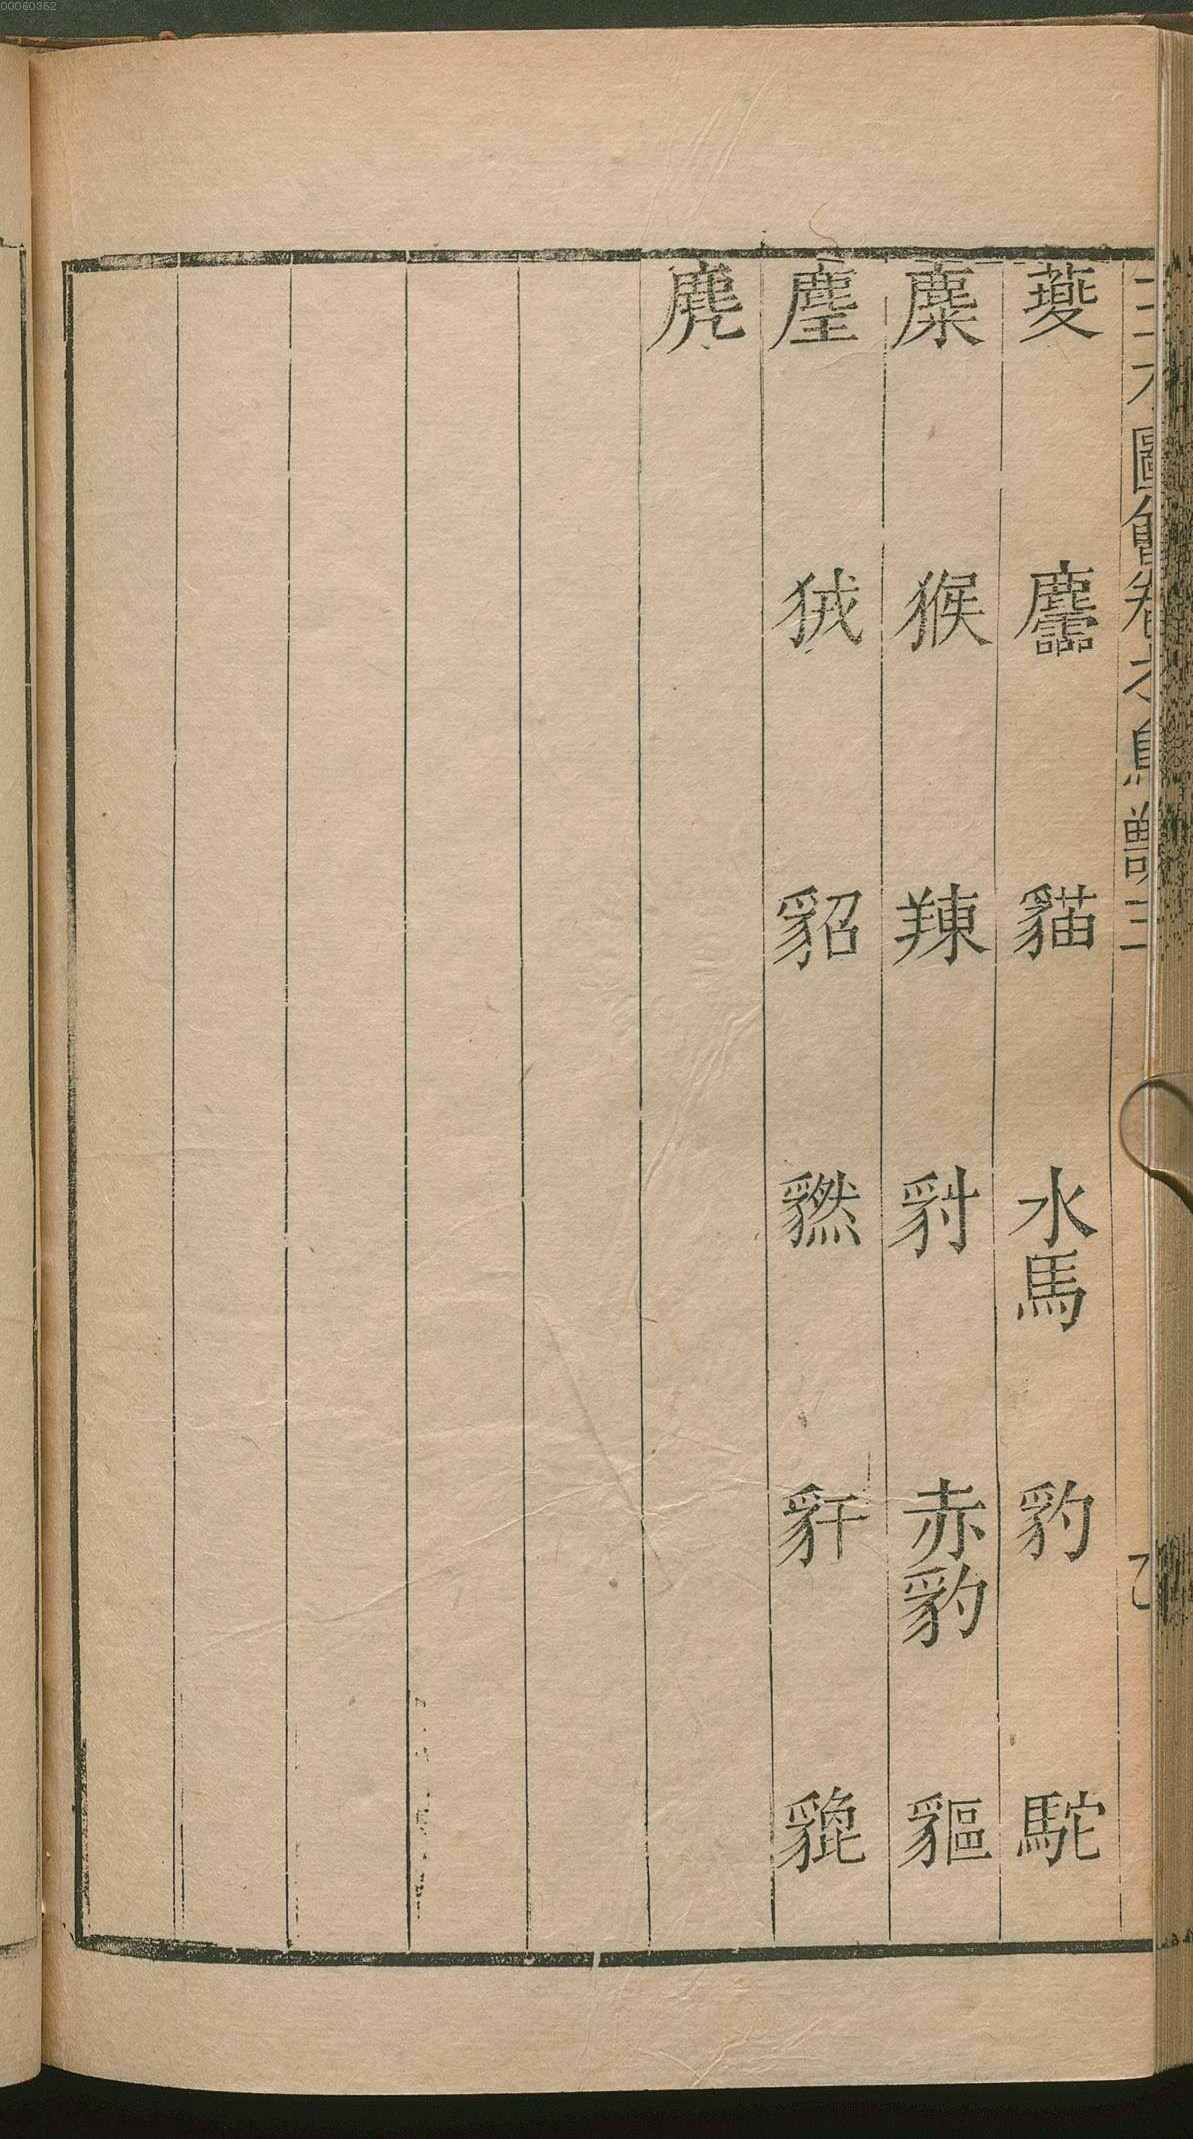 三才圖會卷之鳥獸三
䕫 麢 貓 水馬 豹 駝
麋 猴 䍶 豺 赤豹 貙
麈 狨 貂 豻 貔
麂